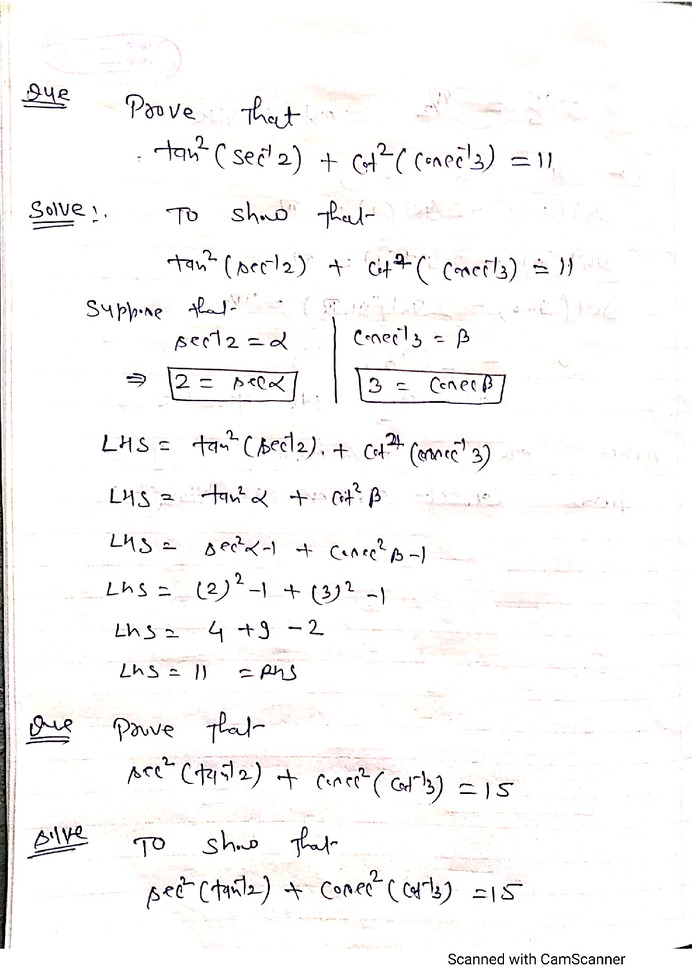 Que Prove that
tan²(sec⁻¹2) + cot²(cosec⁻¹3) = 11
Solve:. To show that
tan²(sec⁻¹2) + cot²(cosec⁻¹3) = 11
Suppose that
sec⁻¹2 = α | cosec⁻¹3 = β
⇒ 2 = secα | 3 = cosecβ
LHS = tan²(sec⁻¹2). + cot²(cosec⁻¹3)
LHS = tan²α + cot²β
LHS = sec²α-1 + cosec²β-1
LHS = (2)²-1 + (3)²-1
LHS = 4 + 9 - 2
LHS = 11 = RHS
Que Prove that
sec²(tan⁻¹2) + cosec²(cot⁻¹3) = 15
Solve To show that
sec²(tan⁻¹2) + cosec²(cot⁻¹3) = 15
Scanned with CamScanner